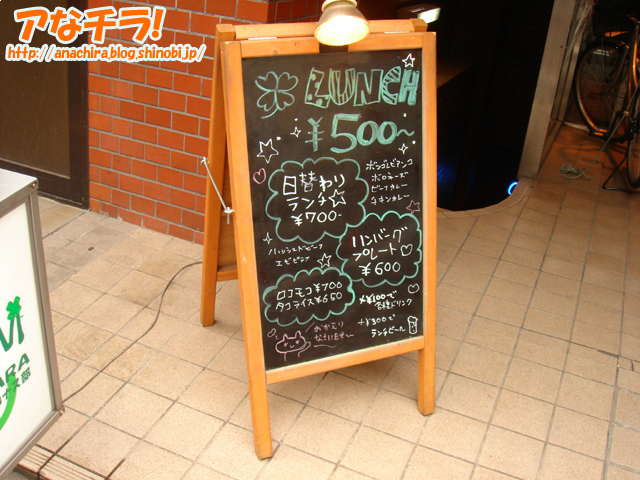 アなチラ!
http://anachira.blog.shinobi.jp/
LUNCH
¥500~
日替わり
ランチ
¥700-
ボンゴレビアンコ
ボロネーズ
ビーフカレー
チキンカレー
ハッシュドビーフ
エビピラフ
ハンバーグ
プレート
¥600
ロコモコ¥700
タコライス¥650
+¥100で
各種ドリンク
+¥300で
ランチビール
おかえり
なさいませ~